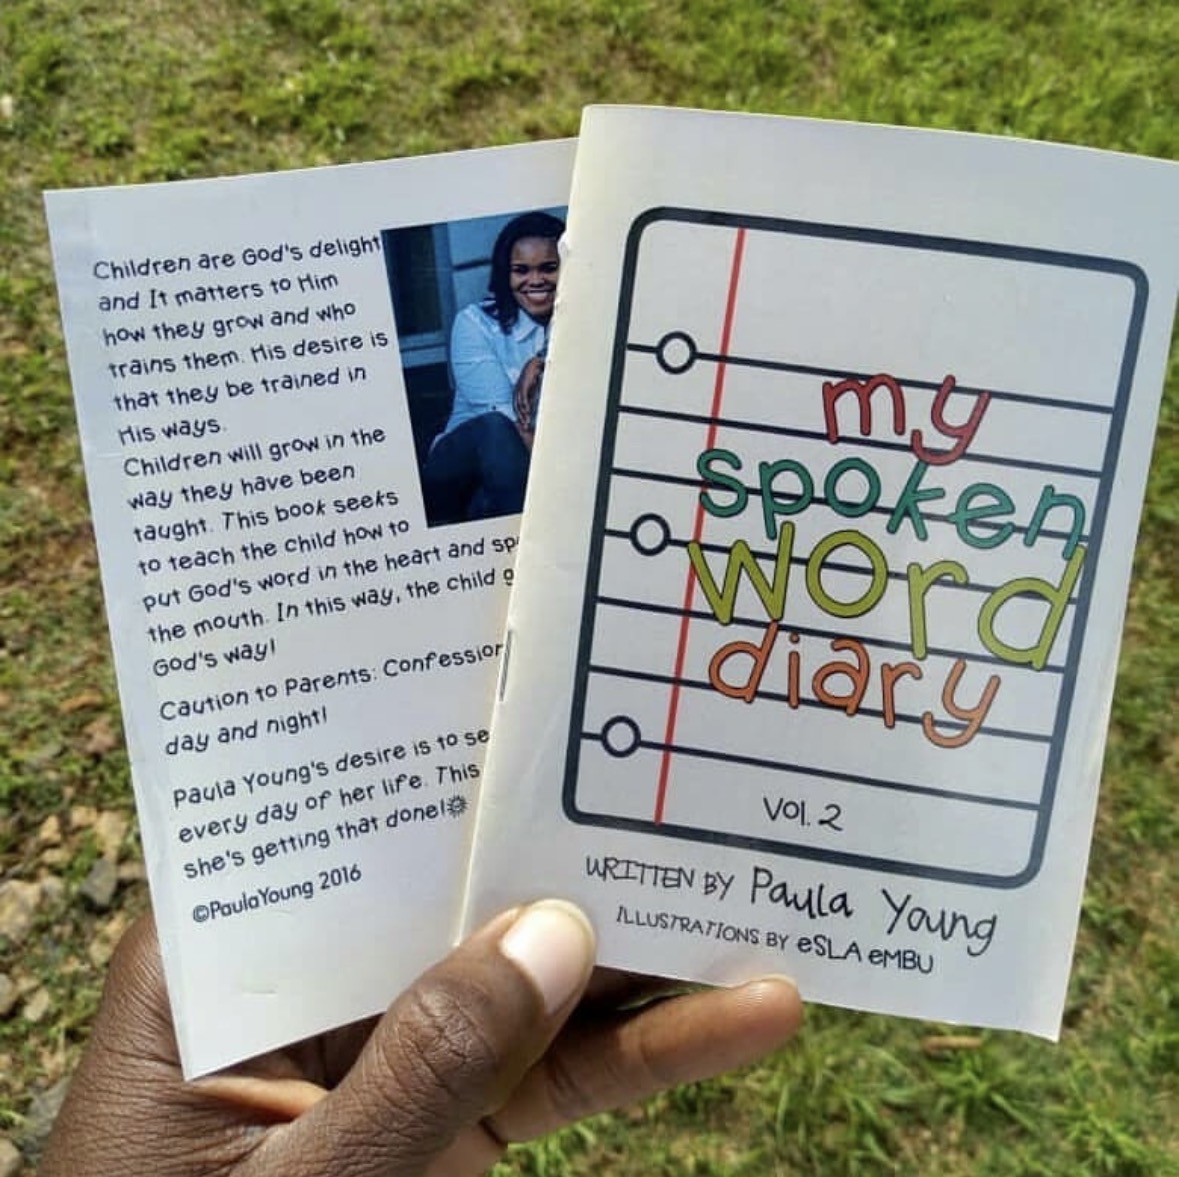 Children are God's delight
and It matters to Him
how they grow and who
trains them. His desire is
that they be trained in
His ways.
Children will grow in the
way they have been
taught. This book seeks
to teach the child how to
put God's word in the heart and
the mouth. In this way, the child
God's way!
Caution to Parents:
day and night!
Paula Young's desire is to
every day of her life. This
she's getting that done!
©PaulaYoung 2016
my
spoken
word
diary
Vol. 2
WRITTEN BY Paula Young
ILLUSTRATIONS BY eSLA eMBU